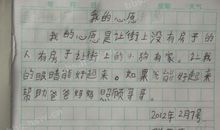 我的心愿
我的心愿是让街上没有房子的
人有房子让街上的小狗有家。让我
的眼睛能好起来。如果能好起来
帮助爸爸妈妈照顾哥哥。
2012年2月7号